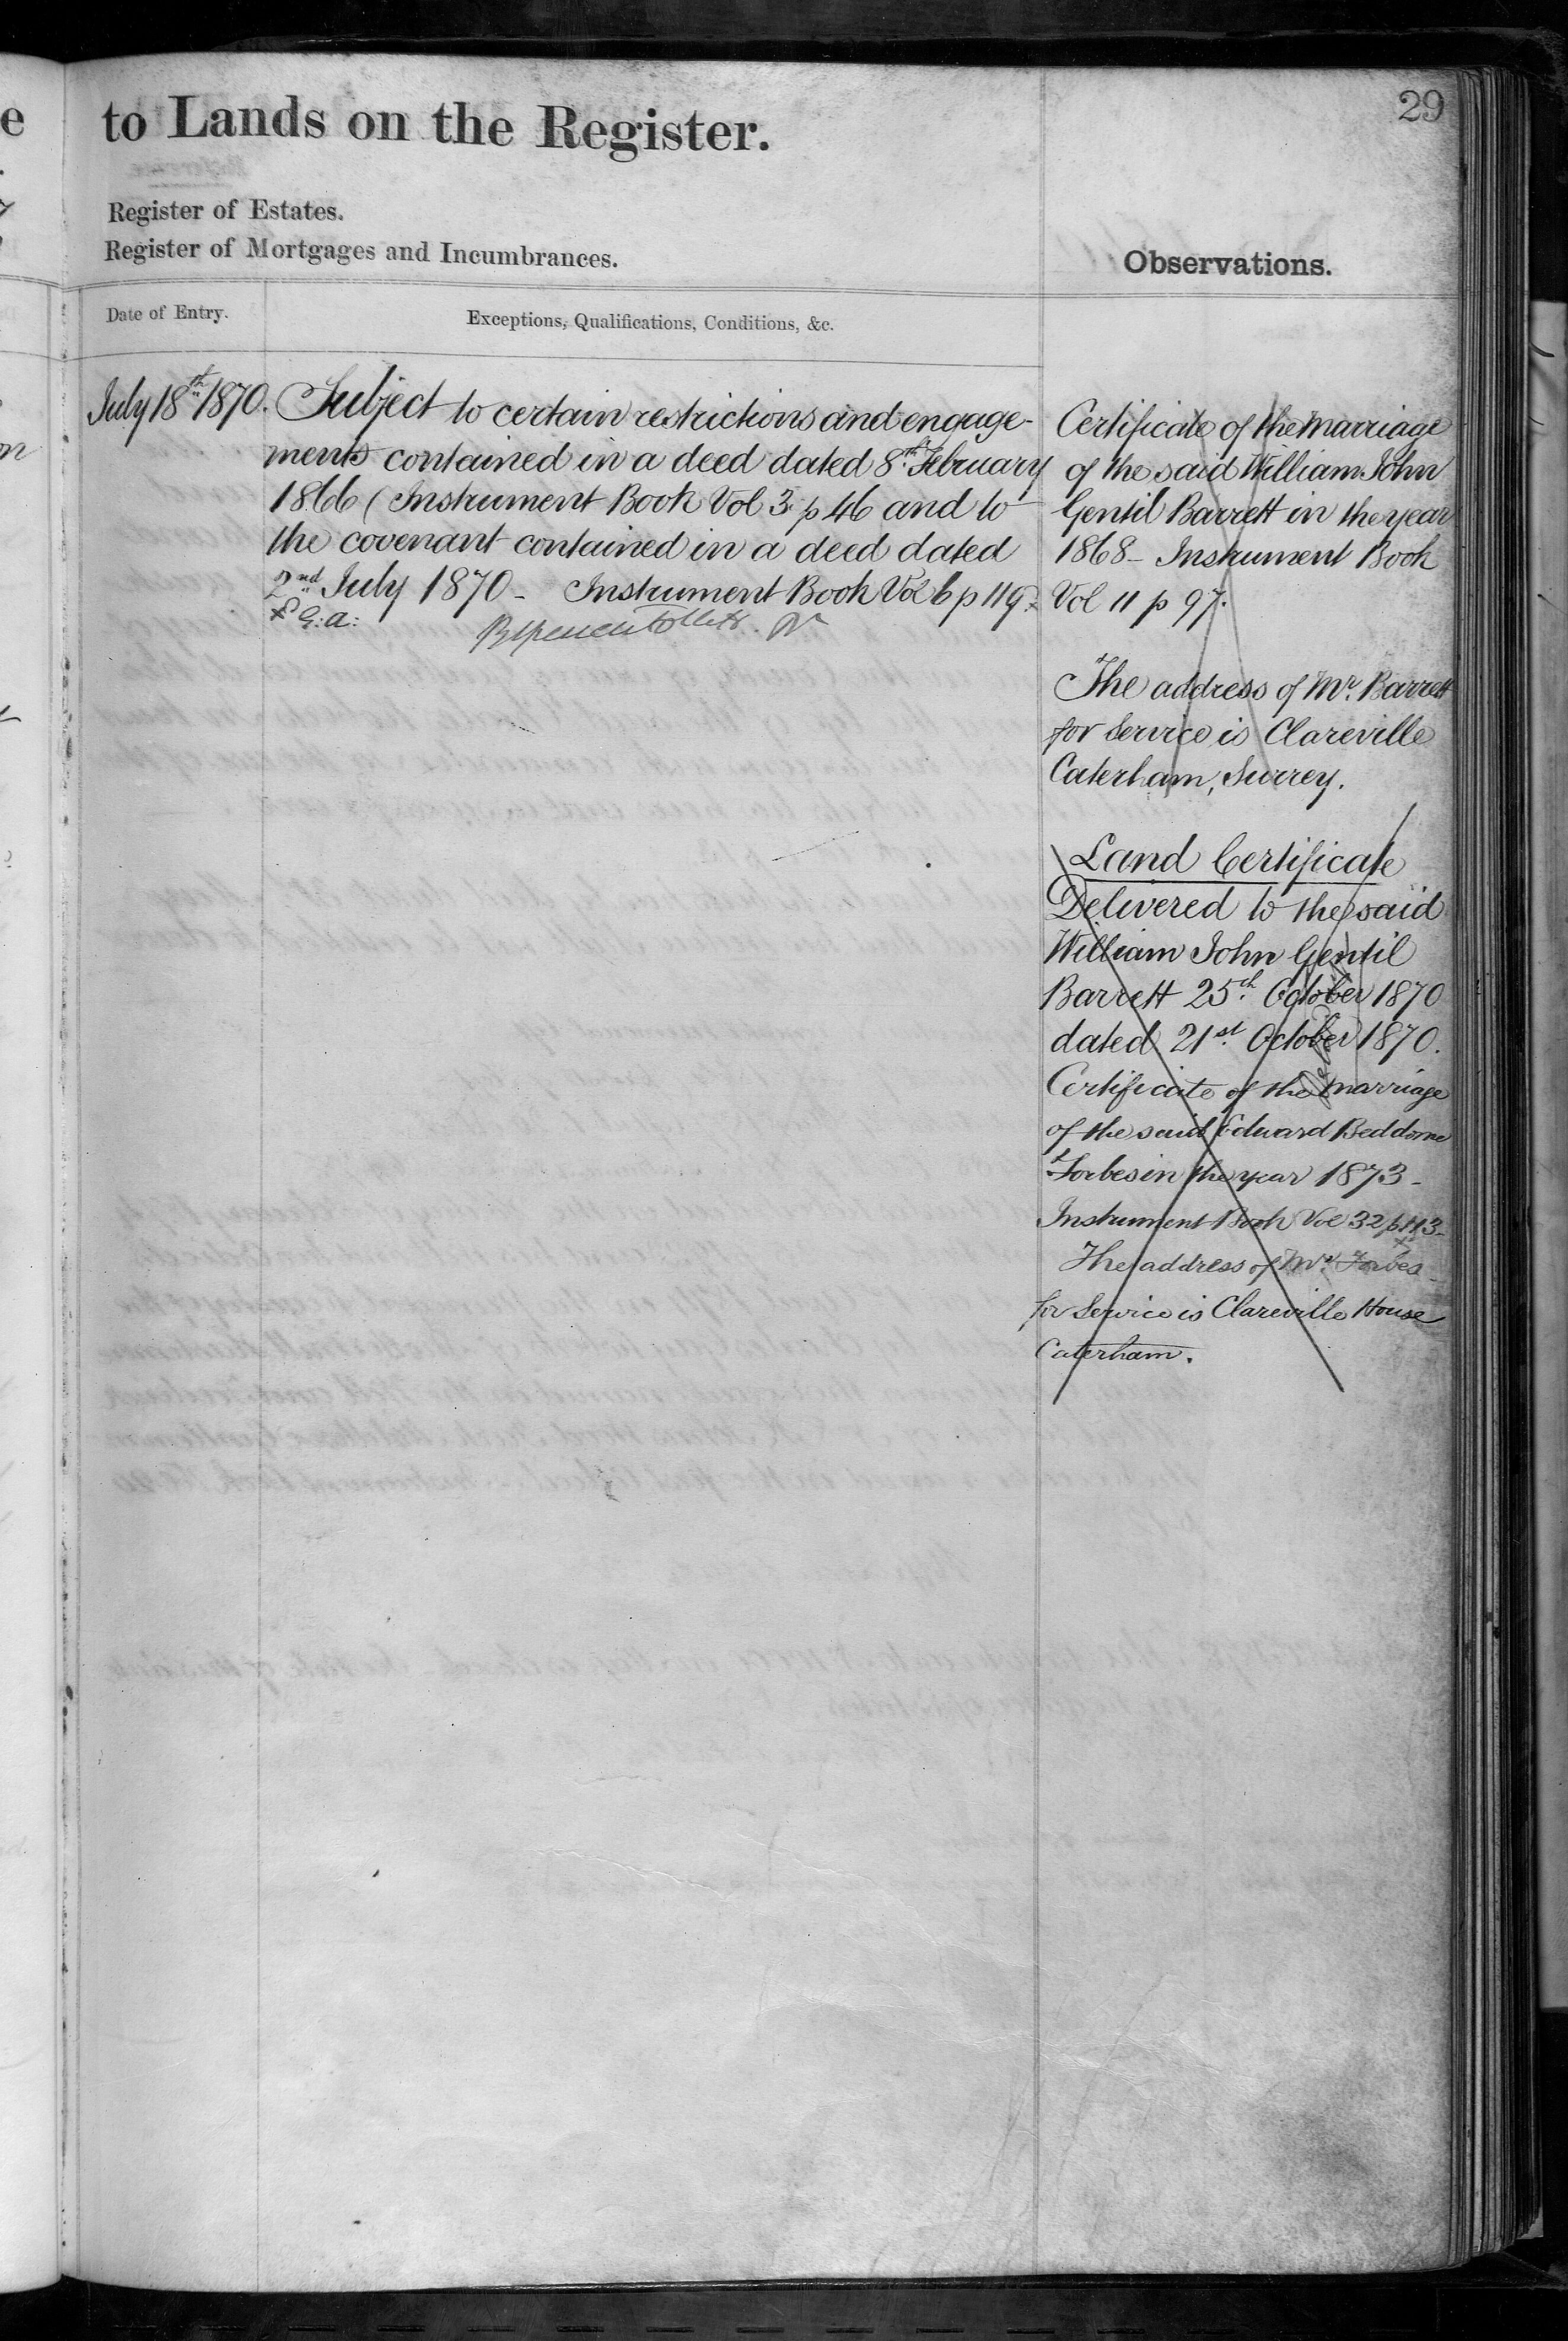 29
to Lands on the Register.
Register of Estates.
Register of Mortgages and Incumbrances.
Observations.
Date of Entry.
Exceptions, Qualifications, Conditions, &c.
July 18th 1870.
Subject to certain restrictions and engage-
ments contained in a deed dated 8th February
1866 (Instrument Book Vol 3 p 46 and to
the covenant contained in a deed dated
2nd July 1870 - Instrument Book Vol 6 p 119.
Certificate of the marriage
of the said William John
Gentil Barrett in the year
1868 - Instrument Book
Vol 11 p 97.
The address of Mr. Barrett
for Service is Clareville
Caterham, Surrey.
Land Certificate
Delivered to the said
William John Gentil
Barrett 25th October 1870
dated 21st October 1870.
Certificate of the marriage
of the said Edward Beddome
Forbes in the year 1873 -
Instrument Book Vol 32 p 113 -
The address of Mr. Forbes
for Service is Clareville House
Caterham.